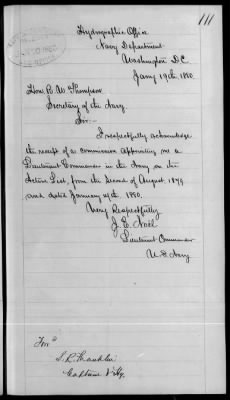 111
Hydrographic Office
Navy Department
Washington D.C.
Jany 19th, 1880.
Hon. R. W. Thompson
Secretary of the Navy.
Sir:-
I respectfully acknowledge
the receipt of a commission appointing me a
Lieutenant Commander in the Navy on the
Active List, from the second of August, 1879,
and dated January 1880.
Very Respectfully
J. E. Noël
Lieutenant Commander
U.S. Navy
Ford
Captain